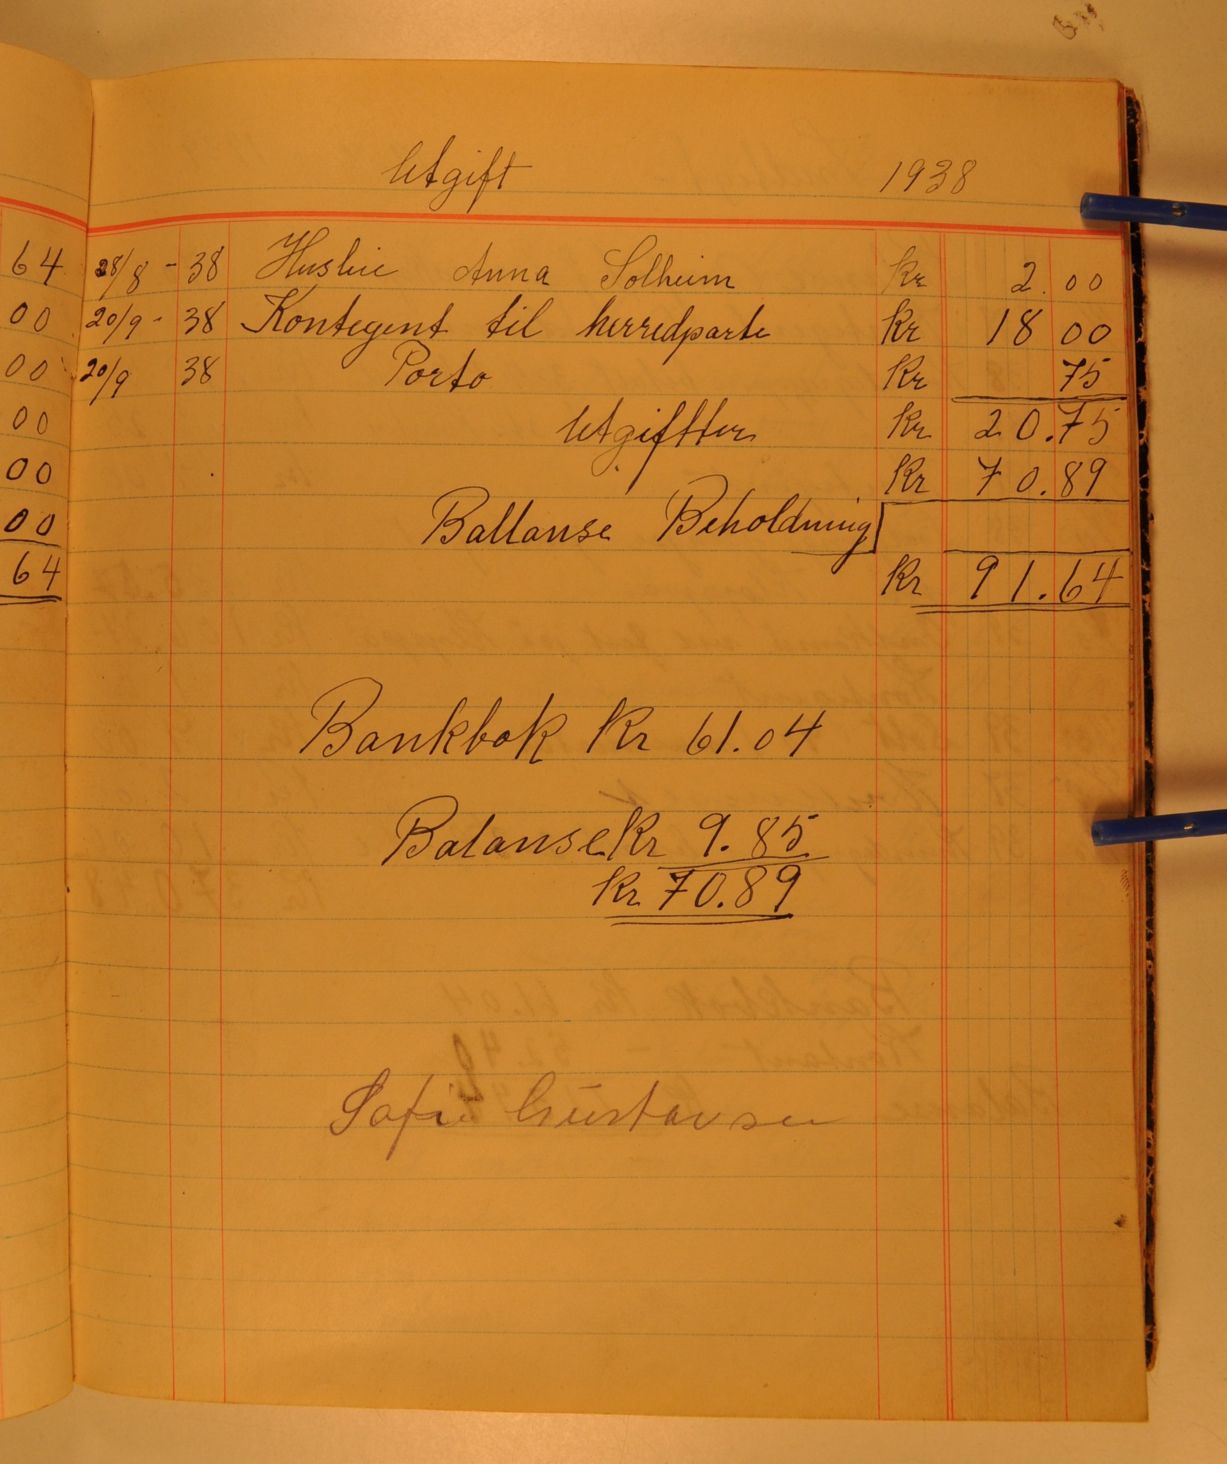 Utgift 1938
64 28/8 - 38 Husleie Anna Solheim Kr 2.00
00 20/9 - 38 Kontegent til herredparte Kr 18 00
00 20/9 38 Porto Kr 75
00 Utgiftter Kr 20.75
00 Kr 70.89
00 Ballanse Beholdning
64 Kr 91.64
Bankbok Kr 61.04
Balanse Kr 9.85
Kr 70.89
Sofie Gustavsen